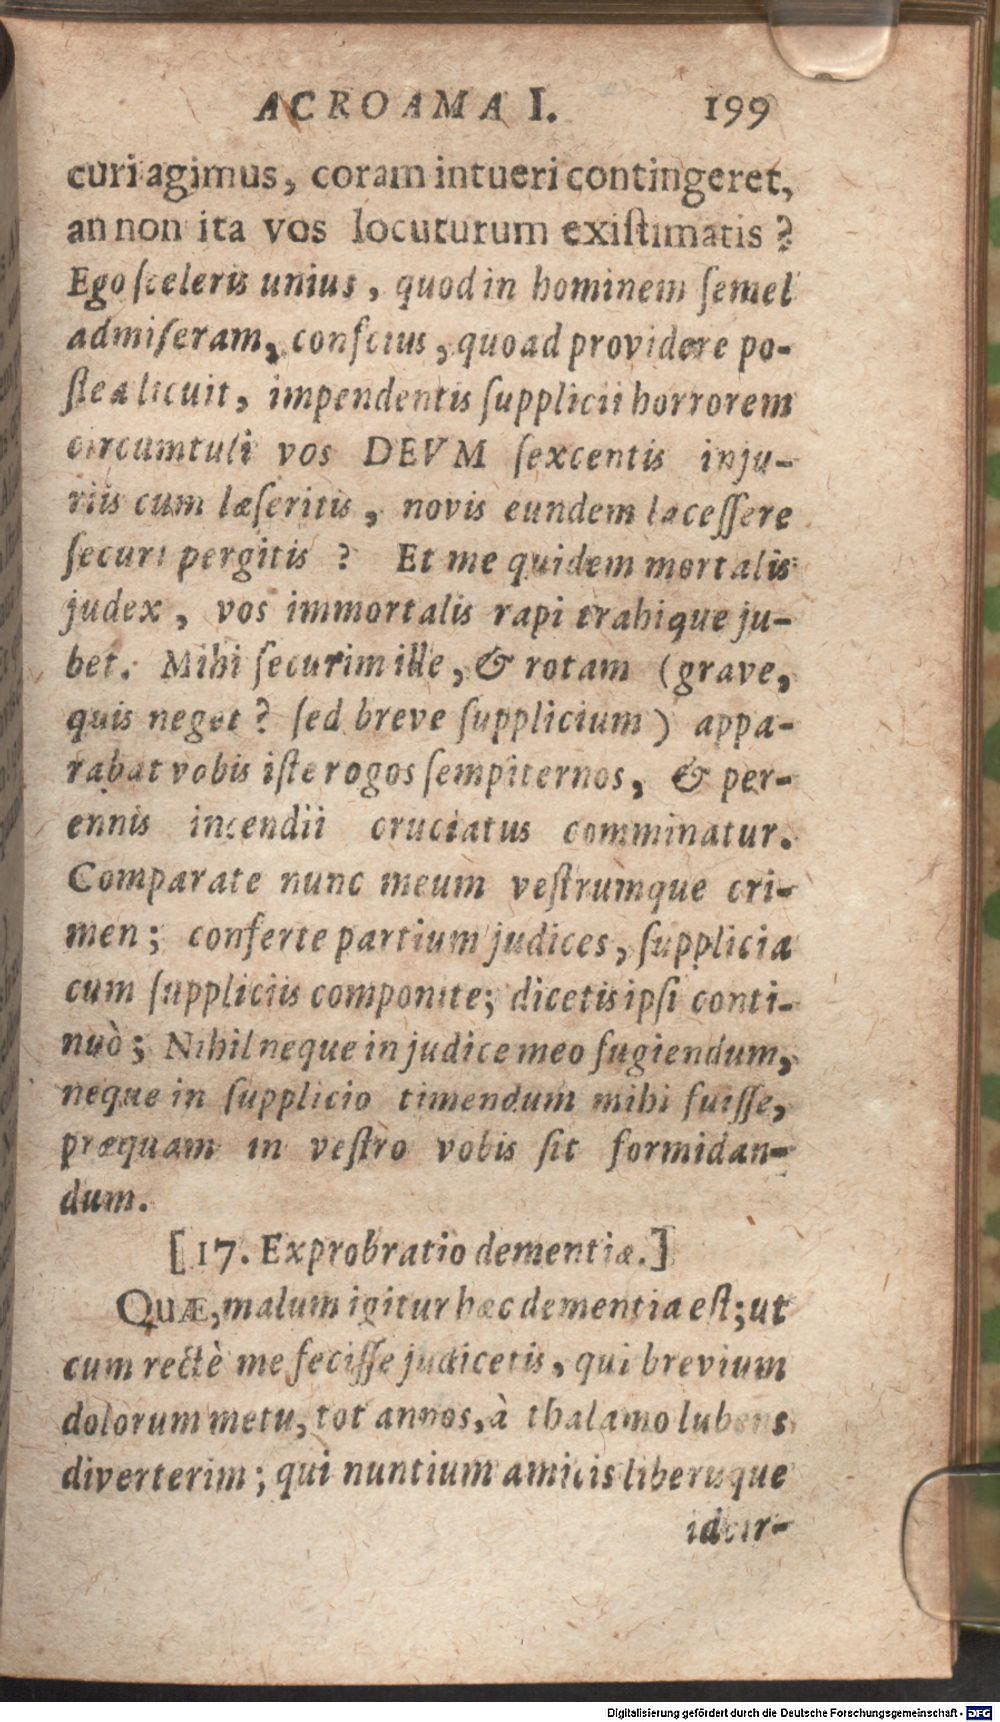 ACROAMA I. 199
curi agimus, coram intueri contingeret,
an non ita vos locuturum exiſtimatis?
Ego ſceleris unius, quod in hominem ſemel
admiſeram, conſcius, quoad providere po-
ſtea licuit, impendentis ſupplicii horrorem
circumtuli vos DEVM ſexcentis inju-
riis cum læſeritis, novis eundem laceſſere
ſecuri pergitis? Et me quidem mortalis
judex, vos immortalis rapi trahique ju-
bet. Mihi ſecurim ille, & rotam (grave,
quis neget? ſed breve ſupplicium) appa-
rabat vobis iſte rogos ſempiternos, & per-
ennis incendii cruciatus comminatur.
Comparate nunc meum veſtrumque cri-
men; conferte partium judices, ſupplicia
cum ſuppliciis componite; dicetis ipſi conti-
nuò; Nihil neque in judice meo fugiendum,
neque in ſupplicio timendum mihi fuiſſe,
præquam in veſtro vobis ſit formidan-
dum.
[17. Exprobratio dementiæ.]
QUÆ, malum igitur hæc dementia eſt; ut
cum rectè me feciſſe judicetis, qui brevium
dolorum metu, tot annos, à thalamo lubens
diverterim; qui nuntium amicis liberisque
idcir-
Digitalisierung gefördert durch die Deutsche Forschungsgemeinschaft - DFG